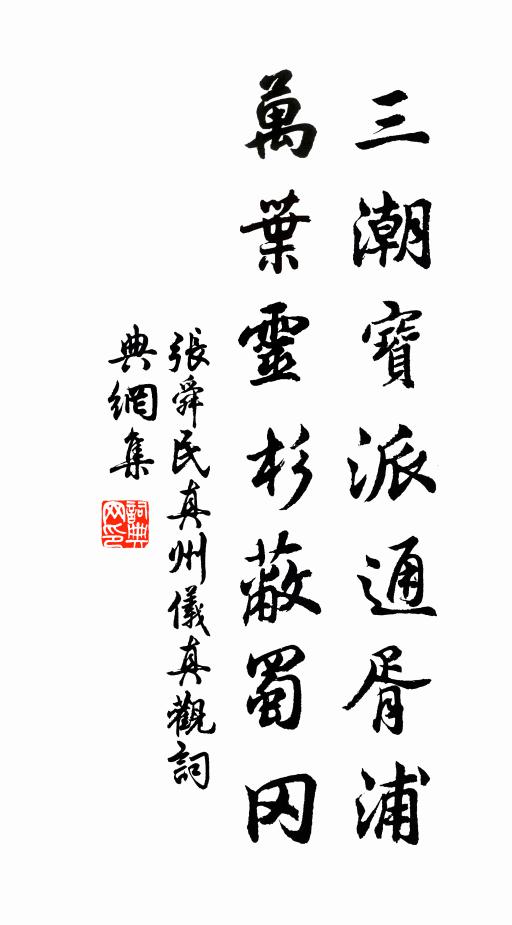 三潮寶派通胥浦
萬葉靈杉蔽蜀冈
張舜民真州儀真觀詞
典網集
詞典
网印